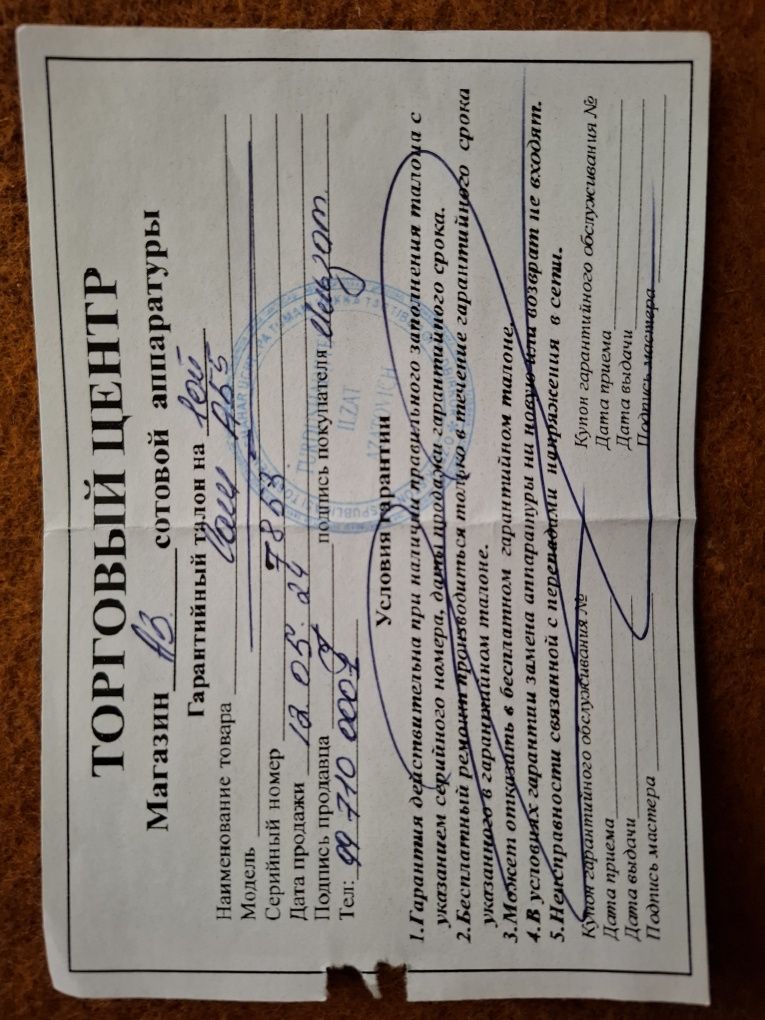 ТОРГОВЫЙ ЦЕНТР
Магазин А3 сотовой аппаратуры
Гарантийный талон на 1год
Наименование товара Сам А55
Модель
Серийный номер 7853
Дата продажи 12 05. 24
Подпись продавца подпись покупателя Илзат
Тел: 99 710 0007
TURDIYEV
ILZAT
AZATOVICH
Условия гарантии
1.Гарантия действительна при наличии правильного заполнения талона с
указанием серийного номера, даты продажи гарантийного срока.
2.Бесплатный ремонт производиться только в течение гарантийного срока
указанного в гарантийном талоне.
3.Может отказать в бесплатном гарантийном талоне.
4.В условиях гарантии замена аппаратуры ни новую или возврат не входят.
5.Неисправности связанной с перепадами напряжения в сети.
Купон гарантийного обслуживания № Купон гарантийного обслуживания №
Дата приема Дата приема
Дата выдачи Дата выдачи
Подпись мастера Подпись мастера